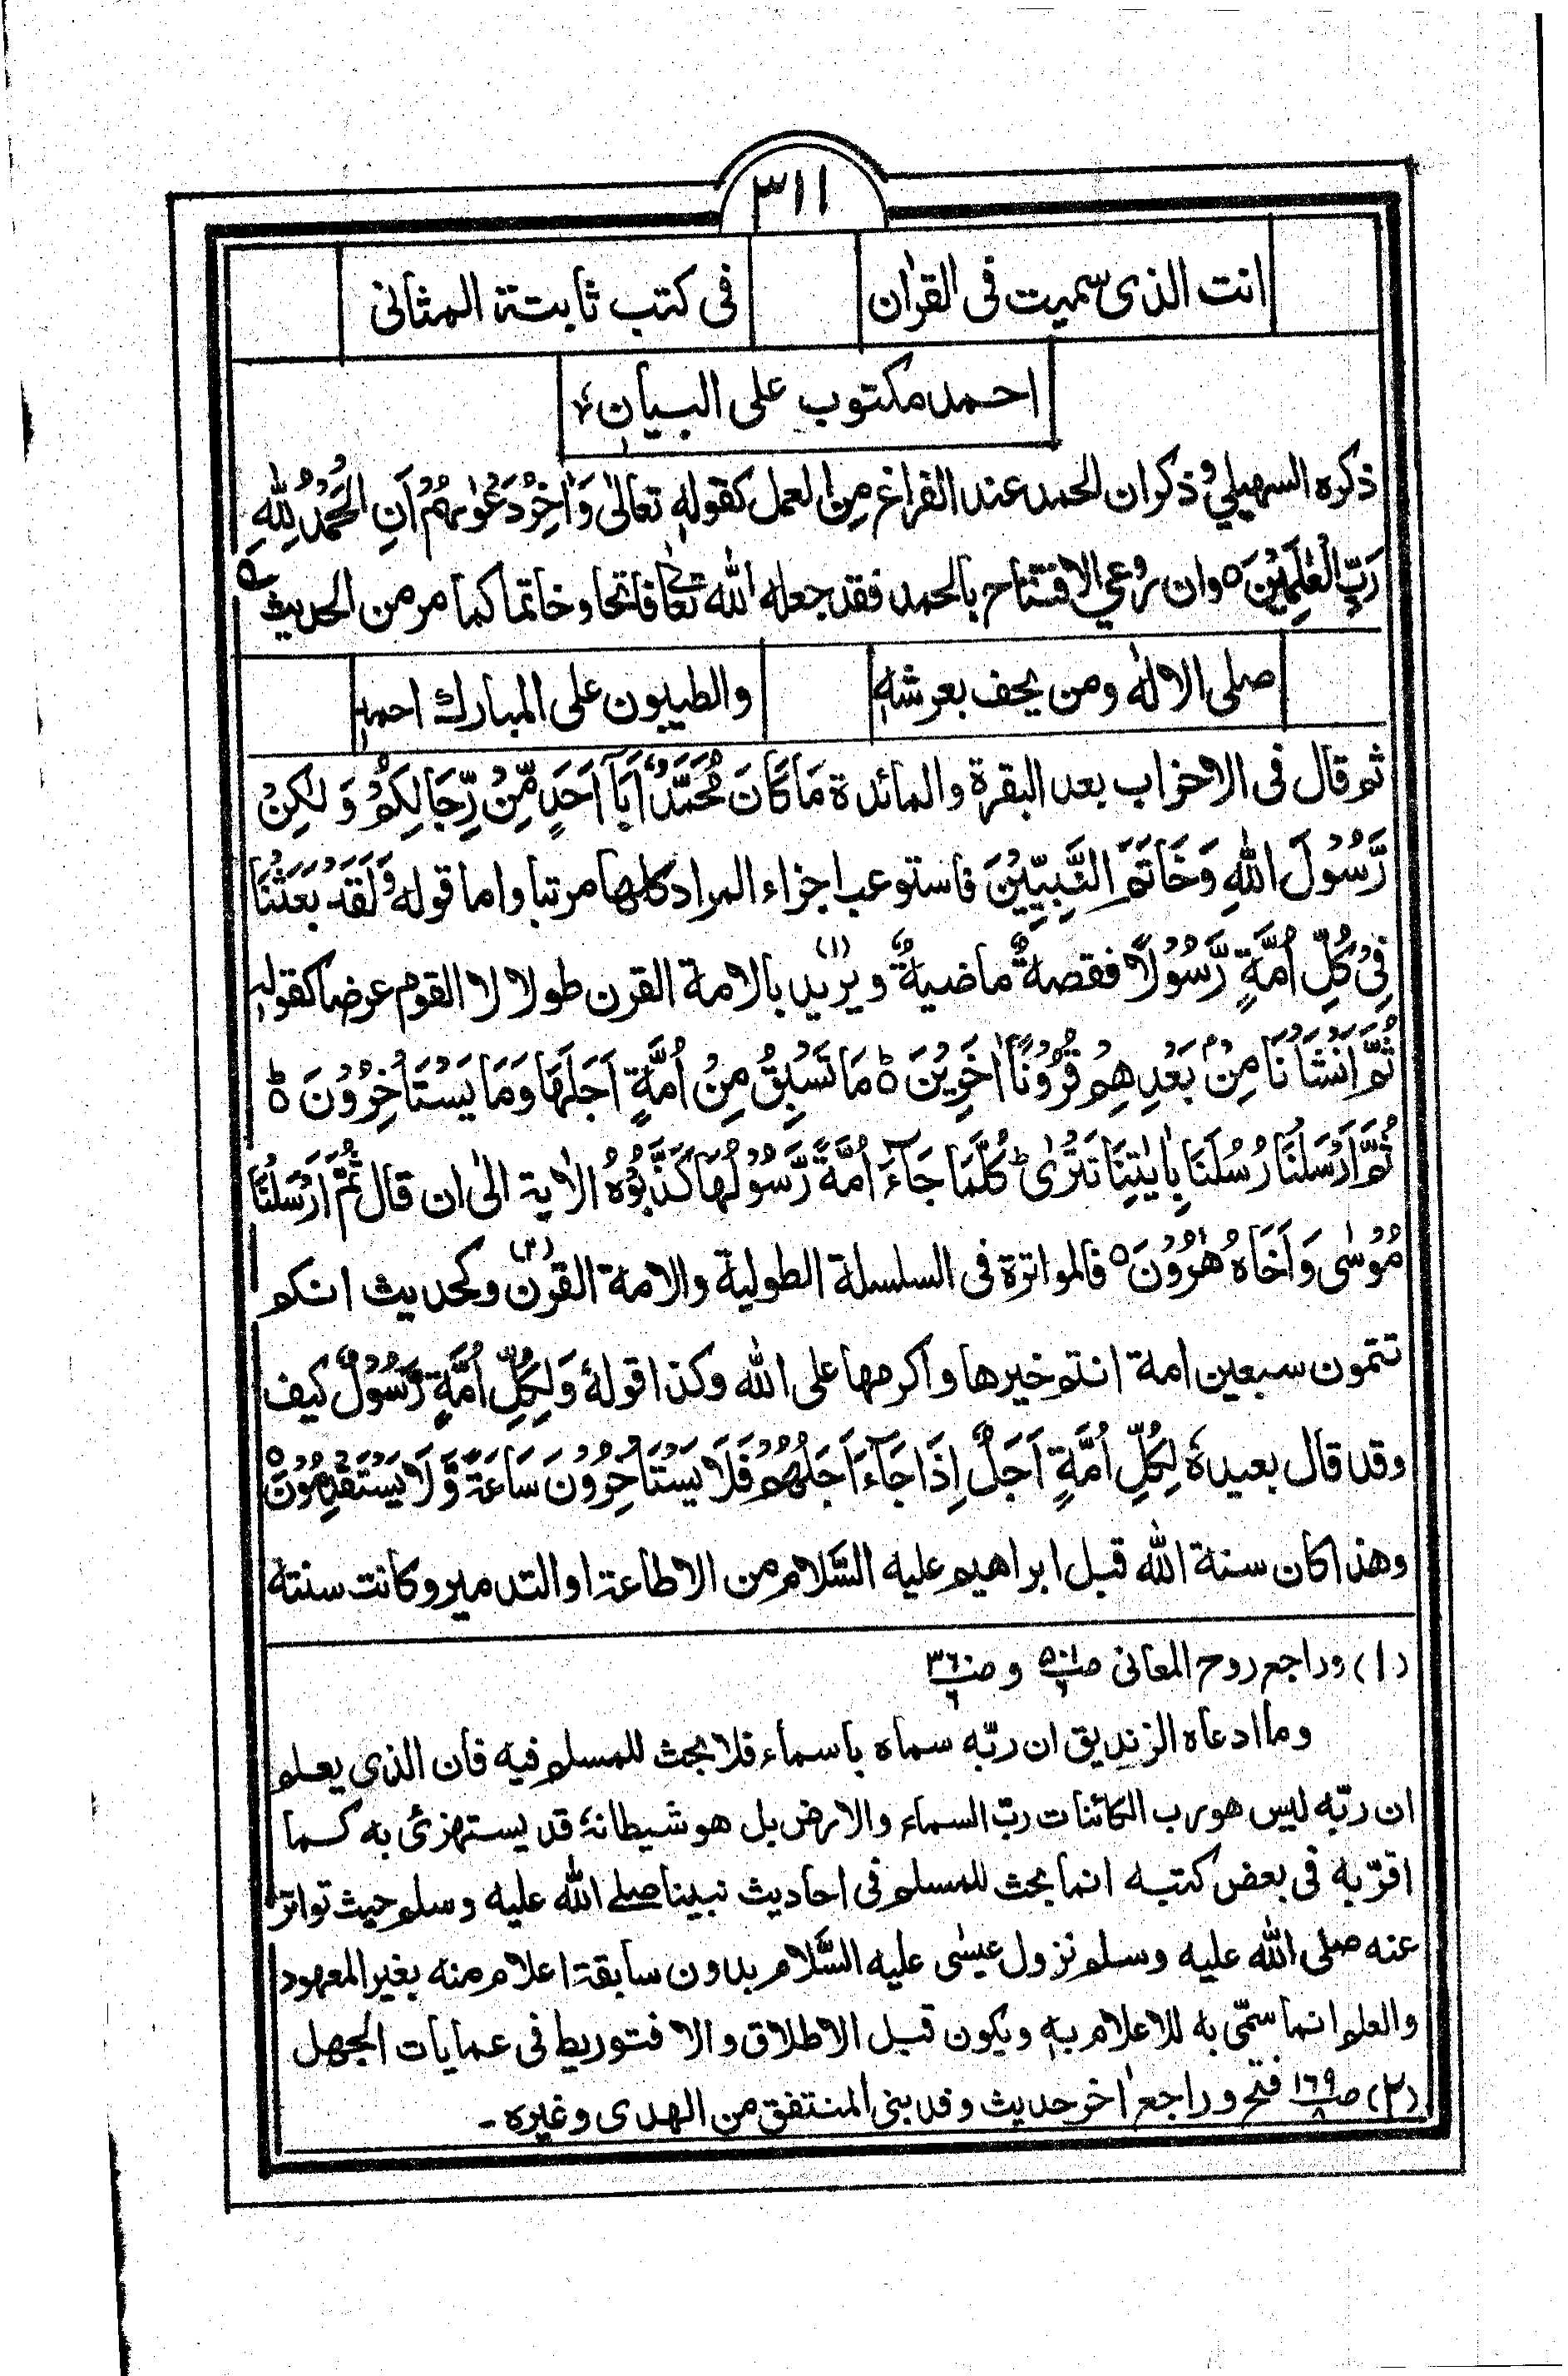 ٣١١
انت الذی سمیت فی القراٰن فی کتب ثابتة المثانی
احمد مکتوب علی البیان
ذکره السهیلیؒ وذکر ان الحمد عند الفراغ من العمل کقولهٖ تعالیٰ وَاٰخِرُ دَعْوٰىهُمْ اَنِ الْحَمْدُ لِلّٰهِ
رَبِّ الْعٰلَمِیْنَ۝ وان رُوعی الافتتاح بالحمد فقد جعله اللّٰه تعالیٰ فاتحا وخاتما کما مر من الحدیث
صلی الالٰه ومن یحف بعرشهٖ والطیبون علی المبارك احمد
ثم قال فی الاحزاب بعد البقرة والمائدة مَا کَانَ مُحَمَّدٌ اَبَآ اَحَدٍ مِّنْ رِّجَالِکُمْ وَ لٰکِنْ
رَّسُوْلَ اللّٰهِ وَخَاتَمَ النَّبِیّٖنَ فاستوعب اجزاء المراد کلها مرتبا واما قوله وَلَقَدْ بَعَثْنَا
فِیْ کُلِّ اُمَّةٍ رَّسُوْلًا فقصةٌ ماضیةٌ ویرید (١) بالامة القرن طولا لا القوم عرضا کقولهٖ
ثُمَّ اَنْشَاْنَا مِنْۢ بَعْدِهِمْ قُرُوْنًا اٰخَرِیْنَ ۝ؕ مَا تَسْبِقُ مِنْ اُمَّةٍ اَجَلَهَا وَمَا یَسْتَاْخِرُوْنَ ۝ؕ
ثُمَّ اَرْسَلْنَا رُسُلَنَا بِاٰیٰتِنَا تَتْرٰیؕ کُلَّمَا جَآءَ اُمَّةً رَّسُوْلُهَا کَذَّبُوْهُ الاٰیة الیٰ ان قال ثُمَّ اَرْسَلْنَا
مُوْسٰی وَاَخَاهُ هٰرُوْنَ۝ فالمواترة فی السلسلة الطولیة والامة القرن (٢) وکحدیث انکم
تتمون سبعین امة انتم خیرها واکرمها علی اللّٰه وکذا قولهٗ وَلِکُلِّ اُمَّةٍ رَّسُوْلٌ کیف
وقد قال بعیدهٗ لِکُلِّ اُمَّةٍ اَجَلٌ اِذَا جَآءَ اَجَلُهُمْ فَلَا یَسْتَاْخِرُوْنَ سَاعَةً وَّلَا یَسْتَقْدِمُوْنَ۝
وهذا کان سنة اللّٰه قبل ابراهیم علیه السَّلام من الاطاعة او التدمیر وکانت سنته
(١) وراجع روح المعانی ص٥٠١/١ و ص٣٦٠/١
وما ادعاه الزندیق ان ربّه سماه باسماء فلا بحث للمسلم فیه فان الذی یعلم
ان ربّه لیس هو رب الکائنات ربّ السماء والارض بل هو شیطانهٗ قد یستهزئ به کما
اقرّ به فی بعض کتبه انما بحث للمسلم فی احادیث نبینا صلے اللّٰه علیه وسلم حیث تواتر
عنه صلی اللّٰه علیه وسلم نزول عیسٰی علیه السَّلام بدون سابقة اعلام منه بغیر المعهود
والعلم انما سمّی به للاعلام بهٖ ویکون قبل الاطلاق والا فتوریط فی عمایات الجهل
(٢) ص١٦٩/٨ فتح وراجع اٰخر حدیث وفد بنی المنتفق من الهدی وغیره۔